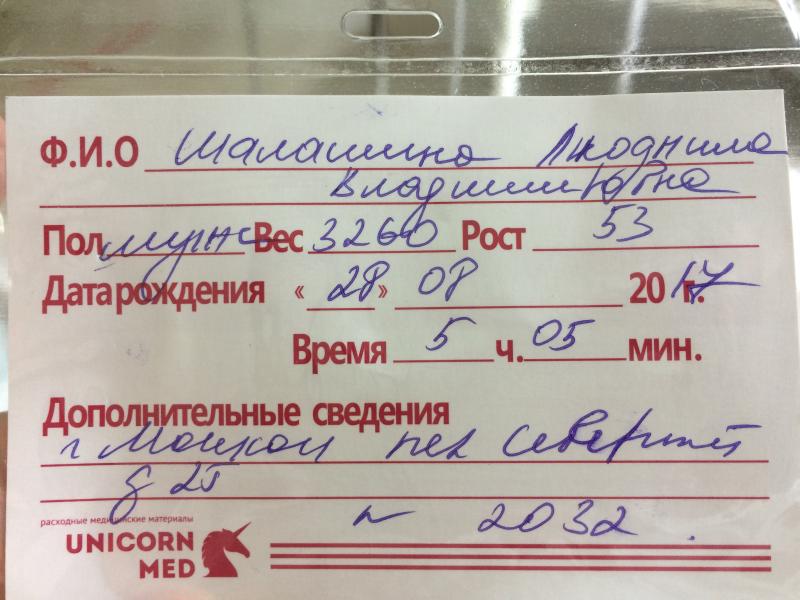 Ф.И.О Шалашина Людмила
Владимировна
Пол муж Вес 3260 Рост 53
Дата рождения « 28 » 08 2017 г.
Время 5 ч. 05 мин.
Дополнительные сведения
г
д 25
2032.
расходные медицинские материалы
UNICORN
MED